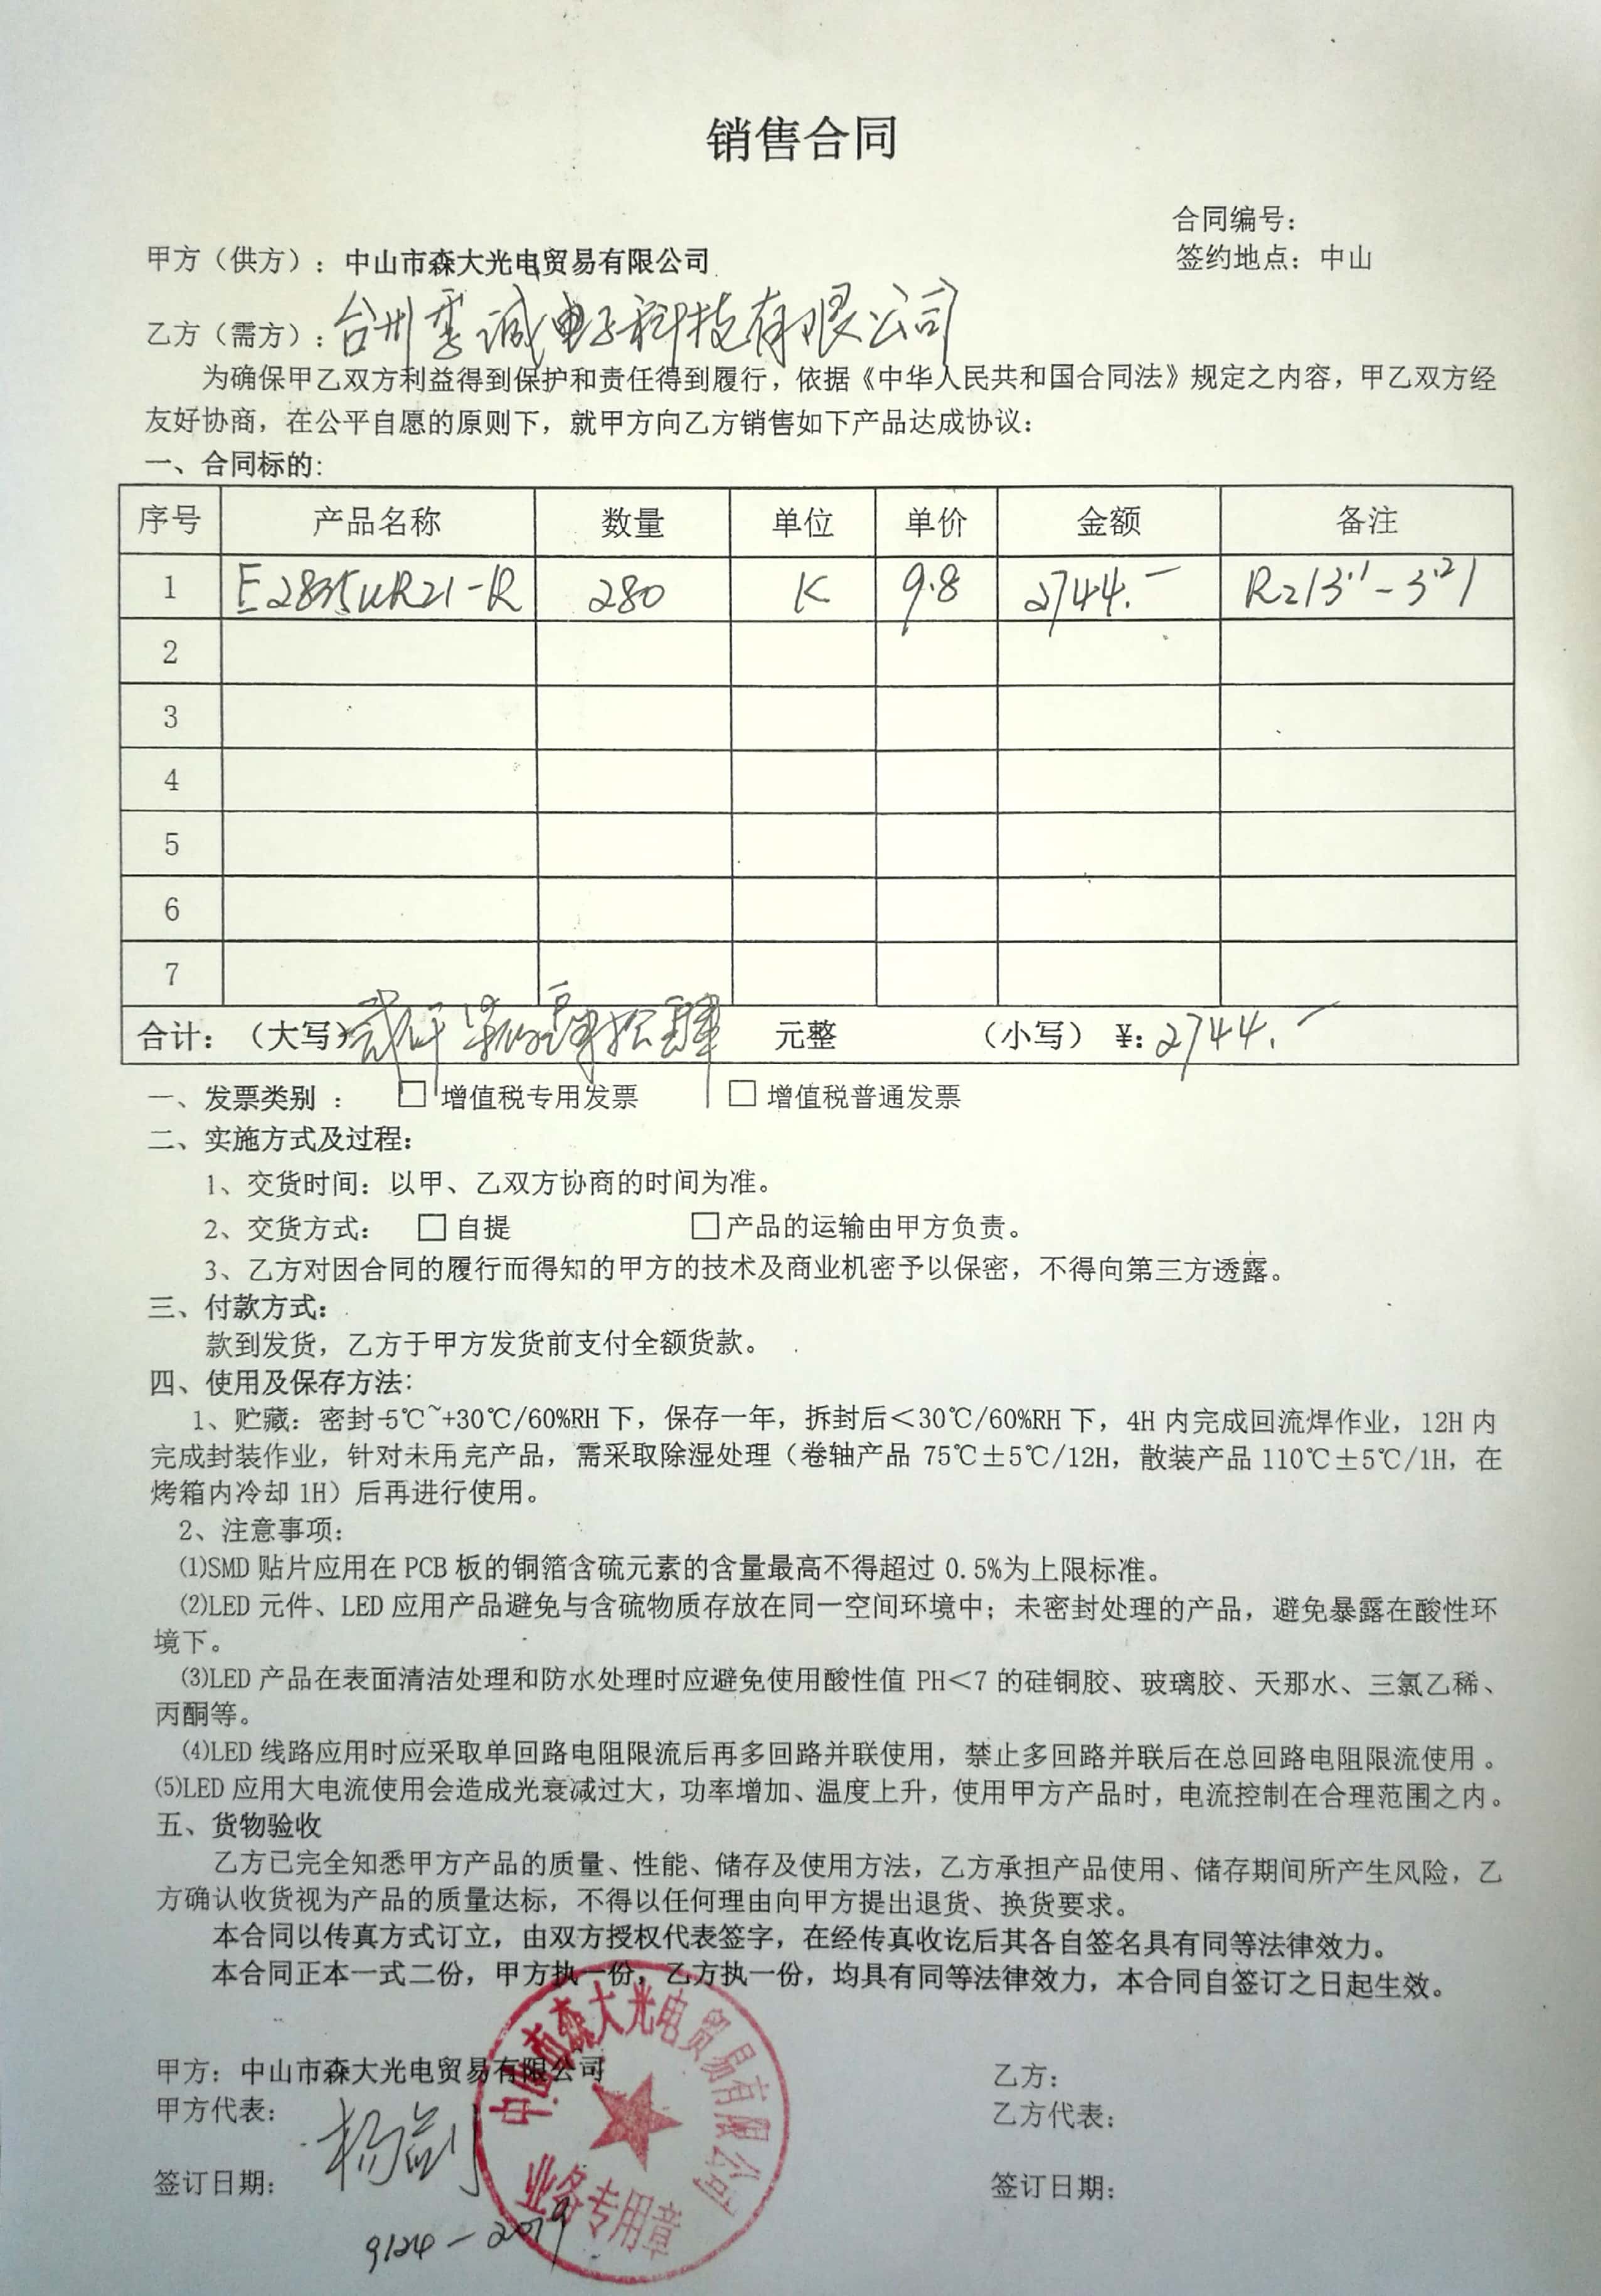 销售合同
合同编号：
甲方（供方）：中山市森大光电贸易有限公司
签约地点：中山
乙方（需方）：台州 诚电子科技有限公司
为确保甲乙双方利益得到保护和责任得到履行，依据《中华人民共和国合同法》规定之内容，甲乙双方经
友好协商，在公平自愿的原则下，就甲方向乙方销售如下产品达成协议：
一、合同标的：
序号 产品名称 数量 单位 单价 金额 备注
1 E2835UR21-R 280 K 9.8 2744.- R21 3.1-3.2
2
3
4
5
6
7
合计：（大写）贰仟柒佰肆拾肆 元整 （小写）¥：2744.-
一、发票类别 ： □ 增值税专用发票 □ 增值税普通发票
二、实施方式及过程：
1、交货时间：以甲、乙双方协商的时间为准。
2、交货方式： □ 自提 □产品的运输由甲方负责。
3、乙方对因合同的履行而得知的甲方的技术及商业机密予以保密，不得向第三方透露。
三、付款方式：
款到发货，乙方于甲方发货前支付全额货款。
四、使用及保存方法：
1、贮藏：密封-5℃~+30℃/60%RH 下，保存一年，拆封后＜30℃/60%RH 下，4H 内完成回流焊作业，12H 内
完成封装作业，针对未用完产品，需采取除湿处理（卷轴产品 75℃±5℃/12H，散装产品 110℃±5℃/1H，在
烤箱内冷却 1H）后再进行使用。
2、注意事项：
⑴SMD 贴片应用在 PCB 板的铜箔含硫元素的含量最高不得超过 0.5%为上限标准。
⑵LED 元件、LED 应用产品避免与含硫物质存放在同一空间环境中；未密封处理的产品，避免暴露在酸性环
境下。
⑶LED 产品在表面清洁处理和防水处理时应避免使用酸性值 PH＜7 的硅铜胶、玻璃胶、天那水、三氯乙稀、
丙酮等。
⑷LED 线路应用时应采取单回路电阻限流后再多回路并联使用，禁止多回路并联后在总回路电阻限流使用 。
⑸LED 应用大电流使用会造成光衰减过大，功率增加、温度上升，使用甲方产品时，电流控制在合理范围之内。
五、货物验收
乙方已完全知悉甲方产品的质量、性能、储存及使用方法，乙方承担产品使用、储存期间所产生风险，乙
方确认收货视为产品的质量达标，不得以任何理由向甲方提出退货、换货要求。
本合同以传真方式订立，由双方授权代表签字，在经传真收讫后其各自签名具有同等法律效力。
本合同正本一式二份，甲方执一份，乙方执一份，均具有同等法律效力，本合同自签订之日起生效。
甲方：中山市森大光电贸易有限公司
乙方：
甲方代表：
乙方代表：
签订日期：
签订日期：
9/24-2019
中山市森大光电贸易有限公司
业务专用章